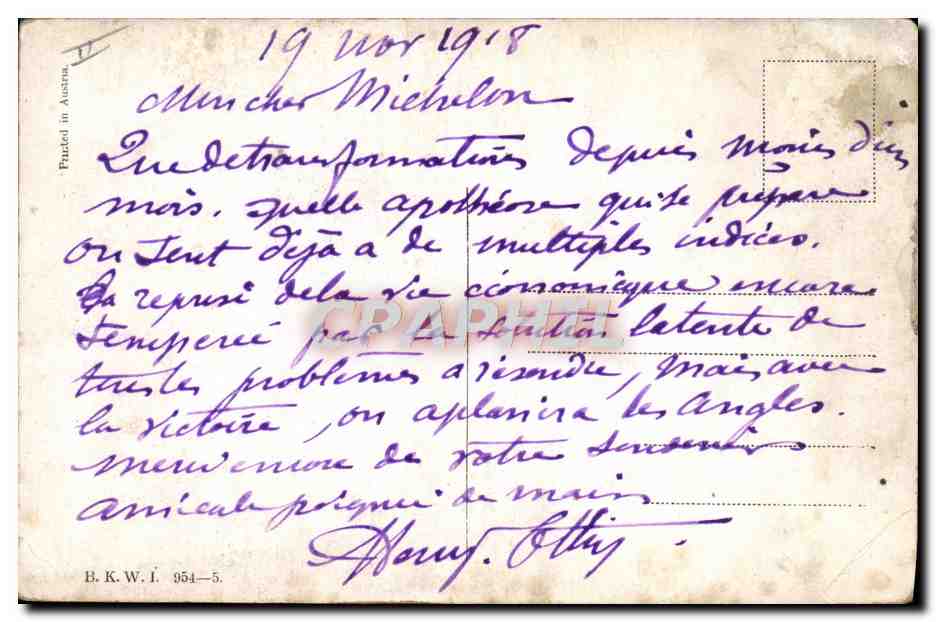 19 nov 1918
Mon cher Michelon
Que de transformations depuis moins d'un
mois. quelle apothéose qui se prépare
on sent déjà a de multiples indices.
La reprise de la vie économique encore
temperée par la solution latente de
tous les problèmes a résoudre, mais avec
la victoire, on aplanira les angles.
merci encore de votre souvenir
amicale poignée de main
Printed in Austria.
B. K. W. I. 954—5.
CPAPHIL